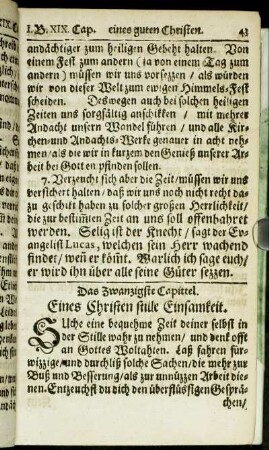 I. B. XIX. Cap. eines guten Christen. 43
andächtiger zum heiligen Gebeht halten. Von
einem Fest zum andern (ja von einem Tag zum
andern) müssen wir uns vorsezzen / als würden
wir von dieser Welt zum ewigen Himmels-Fest
scheiden. Deswegen auch bei solchen heiligen
Zeiten uns sorgfältig anschikken / mit mehrer
Andacht unsern Wandel führen / und alle Kir-
chen-und Andachts-Werke genauer in acht neh-
men / als die wir in kurzem den Genieß unserer Ar-
beit bei Gott en pfinden sollen.
4. Verzeucht sich aber die Zeit / müssen wir uns
versichert halten / daß wir uns noch nicht recht da-
zu geschikt haben zu solcher großen Herrlichkeit /
die zur bestimten Zeit an uns soll offenbahret
werden. Selig ist der Knecht / sagt der Ev-
angelist Lucas, welchen sein Herr wachend
findet / wen er kömt. Warlich ich sage euch /
er wird ihn über alle seine Güter sezzen.
Das Zwanzigste Capittel.
Eines Christen stille Einsamkeit.
Suche eine bequehme Zeit deiner selbst in
der Stille wahr zu nehmen / und denk offt
an Gottes Woltahten. Laß fahren für-
wizzige / und durchliß solche Sachen / die mehr zur
Buß und Besserung / als zur unnüzzen Arbeit die-
nen. Entzeuchst du dich den überflüssigen Gesprä-
chen /